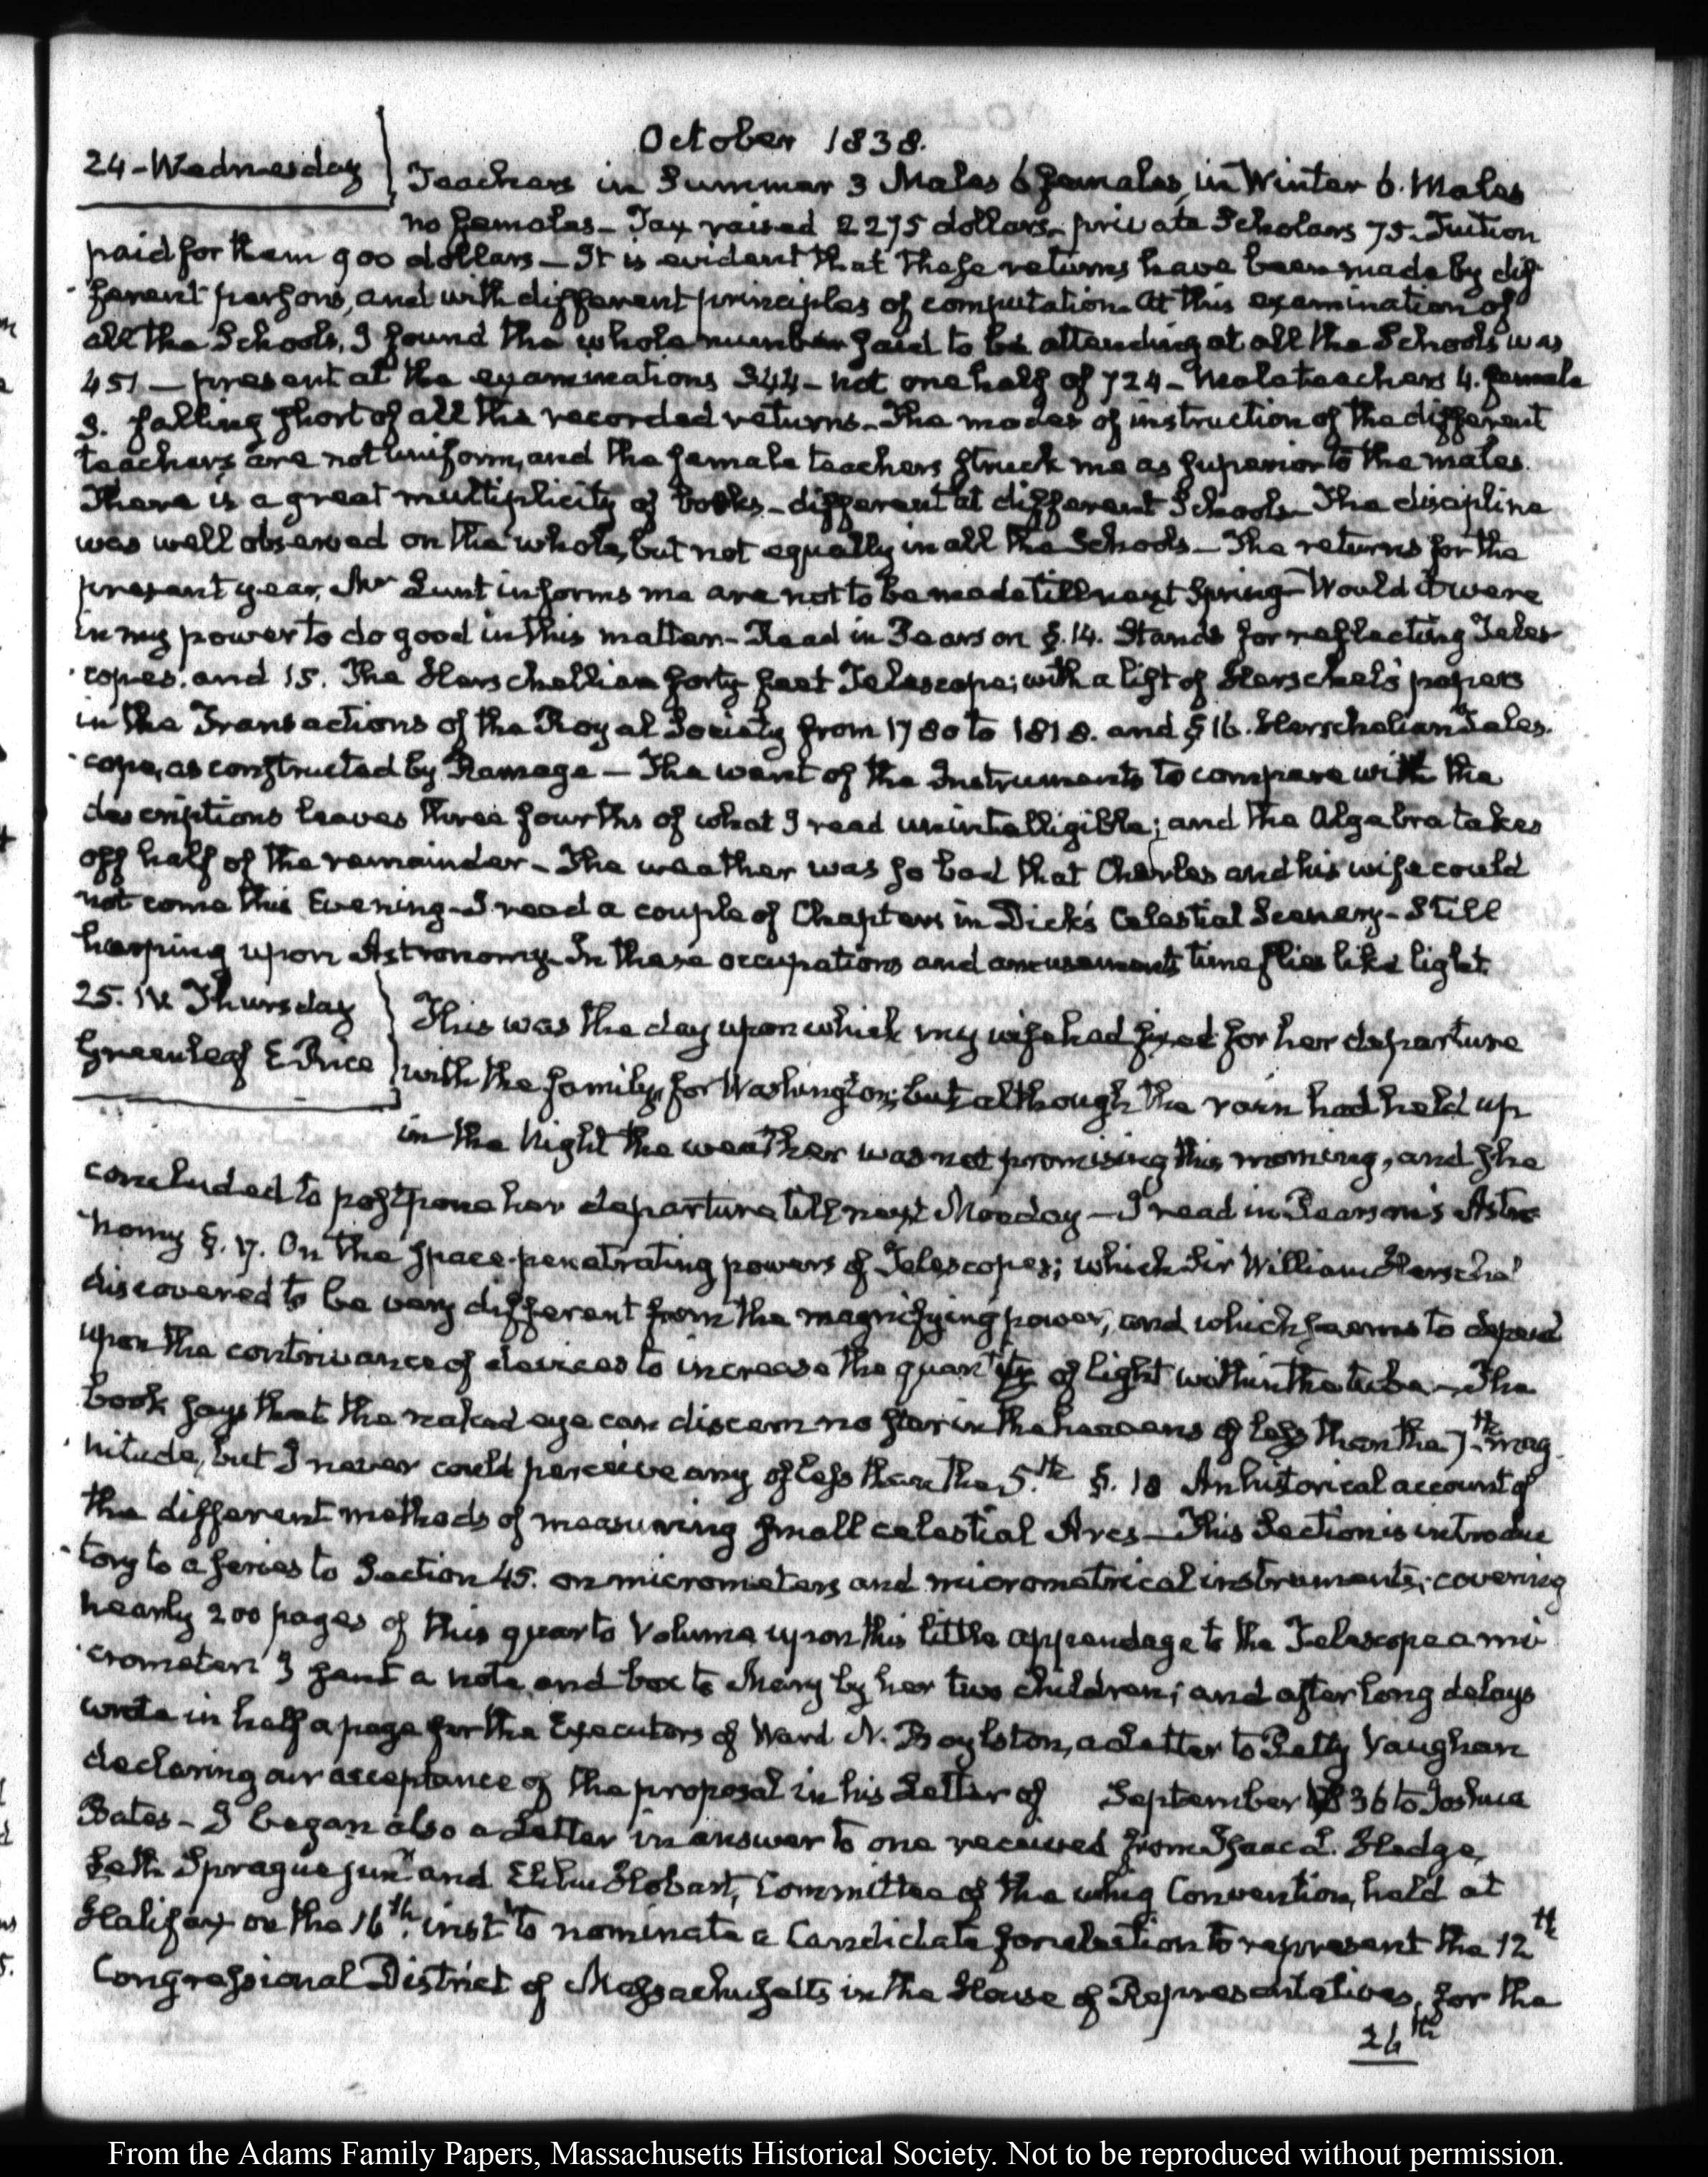 October 1838.
24 - Wednesday
Teachers in Summer 3 Males 6 females, in Winter 6. Males
no females - Tax raised 2275 dollars - private Scholars 75. Tuition
paid for them 900 dollars - It is evident that these returns have been made by dif
ferent persons, and with different principles of computation. At this examination of
all the Schools, I found the whole number said to be attending at all the Schools was
451 - present at the examinations 344 - not one half of 724 - Male teachers 4. female
3. falling short of all the recorded returns - The modes of instruction of the different
teachers are not uniform, and the female teachers struck me as superior to the males.
There is a great multiplicity of books - different at different Schools - The discipline
was well observed on the whole, but not equally in all the Schools - The returns for the
present year, Mr Lunt informs me are not to be made till next Spring - Would it were
in my power to do good in this matter - Read in Pearson §. 14. Stands for reflecting Teles
copes. and 15. The Herschellian forty feet Telescope; with a list of Herschel's papers
in the Transactions of the Royal Society from 1780 to 1818. and § 16. Herschelian Teles.
cope, as constructed by Ramage - The want of the Instruments to compare with the
descriptions leaves three fourths of what I read unintelligible; and the Algebra takes
off half of the remainder - The weather was so bad that Charles and his wife could
not come this Evening - I read a couple of Chapters in Dick's Celestial Scenery - Still
harping upon Astronomy. In these occupations and amusements time flies like light.
25. IV. Thursday
Greenleaf E Price
This was the day upon which my wife had fixed for her departure
with the family, for Washington; but although the rain had held up
in the Night the weather was not promising this morning, and she
concluded to postpone her departure till next Monday - I read in Pearson's Astro
nomy §. 17. On the space-penetrating powers of Telescopes; which Sir William Herschel
discovered to be very different from the magnifying power, and which seems to depend
upon the contrivance of devices to increase the quantity of light within the tube - The
book says that the naked eye can discern no star in the heavens of less than the 7th mag
nitude, but I never could perceive any of less than the 5.th §. 18 An historical account of
the different methods of measuring small celestial Arcs - This Section is introduc
tory to a series to Section 45. on micrometers and micrometrical instruments; covering
nearly 200 pages of this quarto Volume upon this little appendage to the Telescope a mi
crometer. I sent a note and box to Mary by her two children; and after long delays
wrote in half a page for the Executors of Ward N. Boylston, a Letter to Petty Vaughan
declaring our acceptance of the proposal in his Letter of September 1836 to Joshua
Bates - I began also a Letter in answer to one received from Isaac L. Hedge,
Seth Sprague junr and Elihu Hobart, Committee of the whig Convention, held at
Halifax on the 16th. inst. to nominate a Candidate for election to represent the 12th
Congressional District of Massachusetts in the House of Representatives, for the
26th
From the Adams Family Papers, Massachusetts Historical Society. Not to be reproduced without permission.